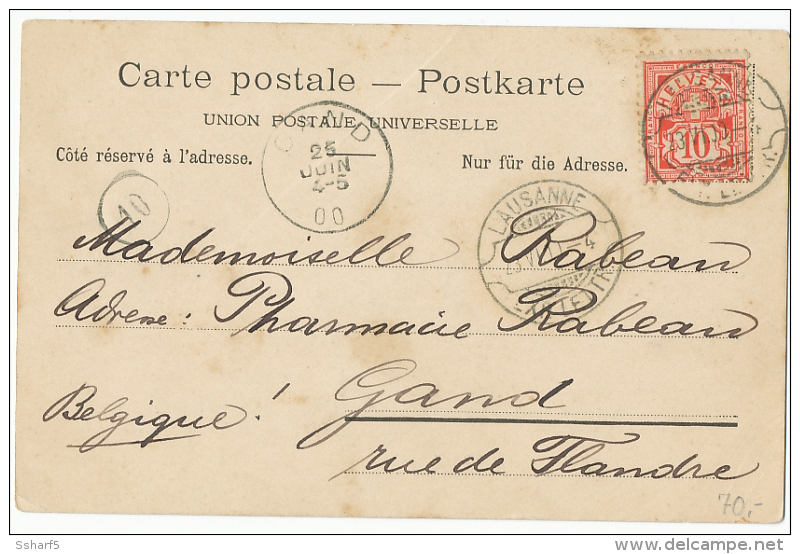 Carte postale — Postkarte
UNION POSTALE UNIVERSELLE
Côté réservé à l'adresse.
Nur für die Adresse.
HELVETIA
10
GAND
25
JUIN
4-5
00
10
LAUSANNE
Mademoiselle Rabeau
Adresse: Pharmacie Rabeau
Gand
Belgique!
rue de Flandre
70.-
Ssharf5
delcampe.net